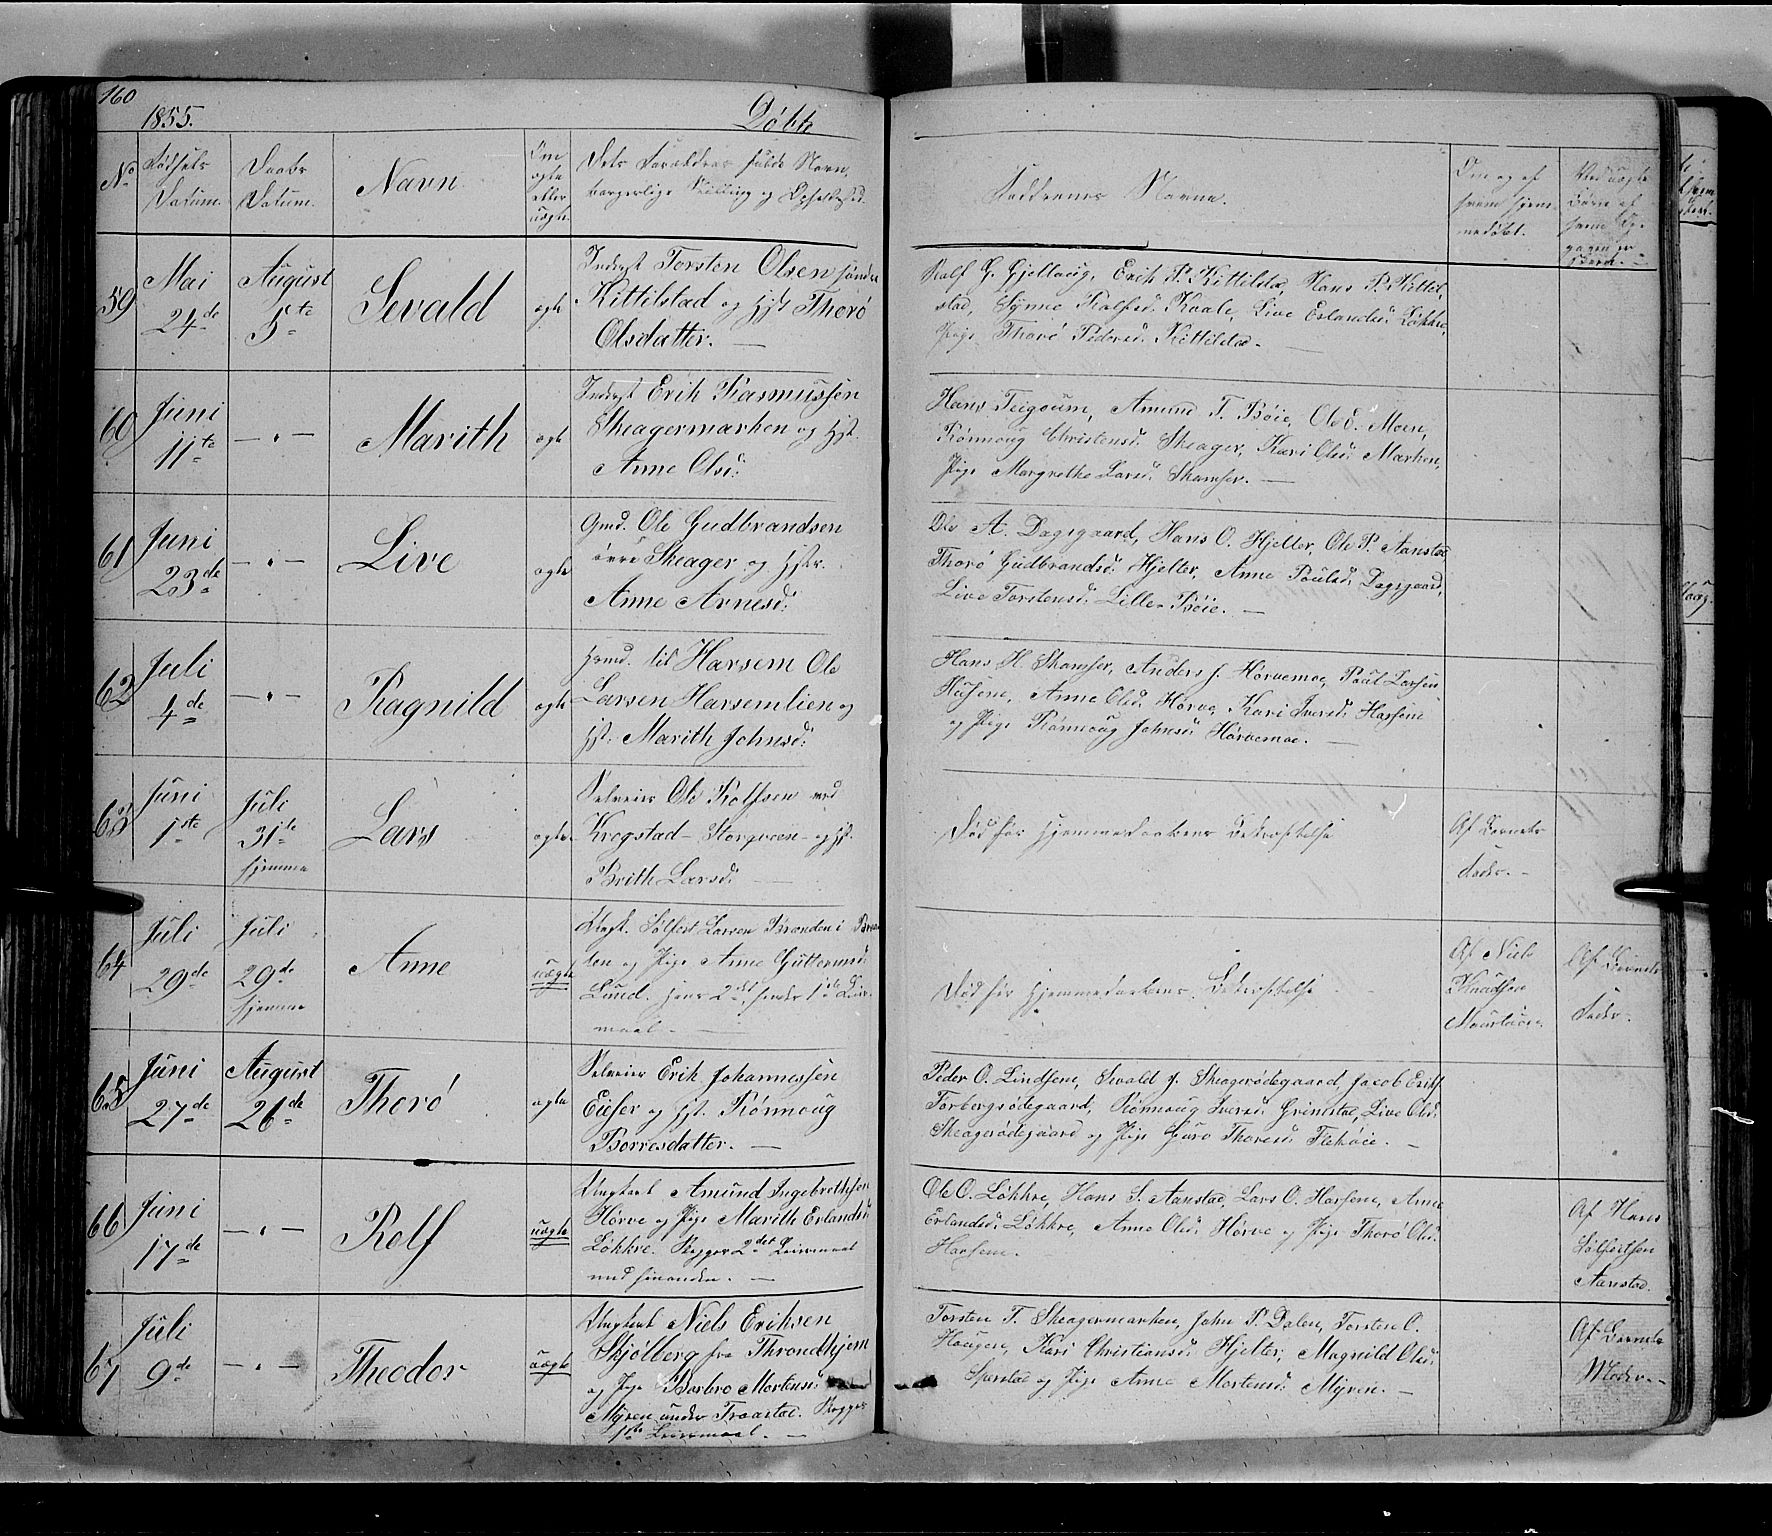 160
1855.
Døbte
No
Fødsels Datum.
Daabs Datum.
Navn
Om ægte eller uægte.
Dets Forældres fulde Navn, borgerlige Stilling og Opholdssted.
Faddernes Navne.
Om og af hvem hjemmedøbt.
59
Mai 24de
August 5te
Sevald
ægte
Inderst Torsten Olsen søndre
Kittilstad og Hst Thorø
Olsdatter. —
Rolf G. Gjellaug, Erik P. Kittilstad, Hans P. Kittil-
stad, Synne Rolfsd. Kvale, Live Erlandsd. Løkkre,
Pige Thorø Pedersd. Kittilstad. —
60
Juni 11te
— " —
Marith
ægte
Inderst Erik Rasmussen
Skeagermarken og Hst.
Anne Olsd:
Hans Teigsum, Amund T. Bøie, Ole J. Moen,
Rønnoug Christensd. Skeager, Kari Olsd. Marken,
Pige Margrethe Larsd. Skamsar. —
61
Juni 23de
— " —
Live
ægte
Gmd. Ole Gudbrandsen
øvre Skeager og Hstr.
Anne Arnesd:
Ole A. Dagsgaard, Hans O. Hjelter, Ole P. Aanstad,
Thorø Gudbrandsd. Hjelter, Anne Poulsd. Dagsgaard,
Live Torstensd. Lille-Bøie. —
62
Juli 4de
— " —
Ragnild
ægte
Hmd. til Harsem Ole
Larsen Harsemlien og
Hst: Marith Johnsd:
Hans H. Skamsar, Anders J. Hørvemoe, Poul Larsen
Anne Olsd. Hørve, Kari Iversd. Harsem
og Pige Rønnoug Johnsd. Hørvemoe. —
63
Juni 1ste
Juli 31te hjemme
Lars
ægte
Selveier Ole Rolfsen ved
Krogstad- Storgveen- og Hst.
Brith Larsd.
Død før Hjemmedaabens Bekræftelse
Af Barnets Fader. —
64
Juli 29de
Juli 29de hjemme
Anne
uægte
Ungk. Sølfest Larsen Brænden i
og Pige Anne Guttormsd.
Lund. Hans 2det, hendes 1ste Leier-
maal. —
Død før Hjemmedaabens Bekræftelse
Af Niels Knudsen
Af Barnets Fader.
65
Juni 27de
August 26de
Thorø
ægte
Selveier Erik Johannessen
og Hst. Rønnoug
Borresdatter. —
Peder O. Lindsøe, Sevald J. Skeagerødegaard, Jacob Eriks.
Forbergsødegaard, Rønnoug Iversd. Grimstad, Live Olsd.
Skeagerødegaard og Pige Guro Thoresd. Flekøie. —
66
Juni 17de
— " —
Rolf
uægte
Ungkarl Amund Ingebrethsen
Hørve og Pige Marith Erlandsd.
Løkkre. Begges 2det Leiermaal
med hinanden. —
Ole O. Løkkre, Hans S. Aanstad, Lars O. Harsem, Anne
Erlandsd. Løkkre, Anne Olsd. Hørve og Pige Thorø Olsd.
Harsem.
Af Hans Sølfestsen Aanstad.
67
Juli 9de
— " —
Theodor
uægte
Ungkarl Niels Eriksen
Skjølberg fra Throndhjem
og Pige Barbro Mortensd.
Myren under Traastad. Begges
1ste Leiermaal. —
Torsten T. Skeagermarken, John P. Dalen, Torsten O.
Haugen, Kari Christiansd. Hjelter, Magnild Olsd.
Sperstad og Pige Anne Mortensd. Myren. —
Af Barnets Moder. —